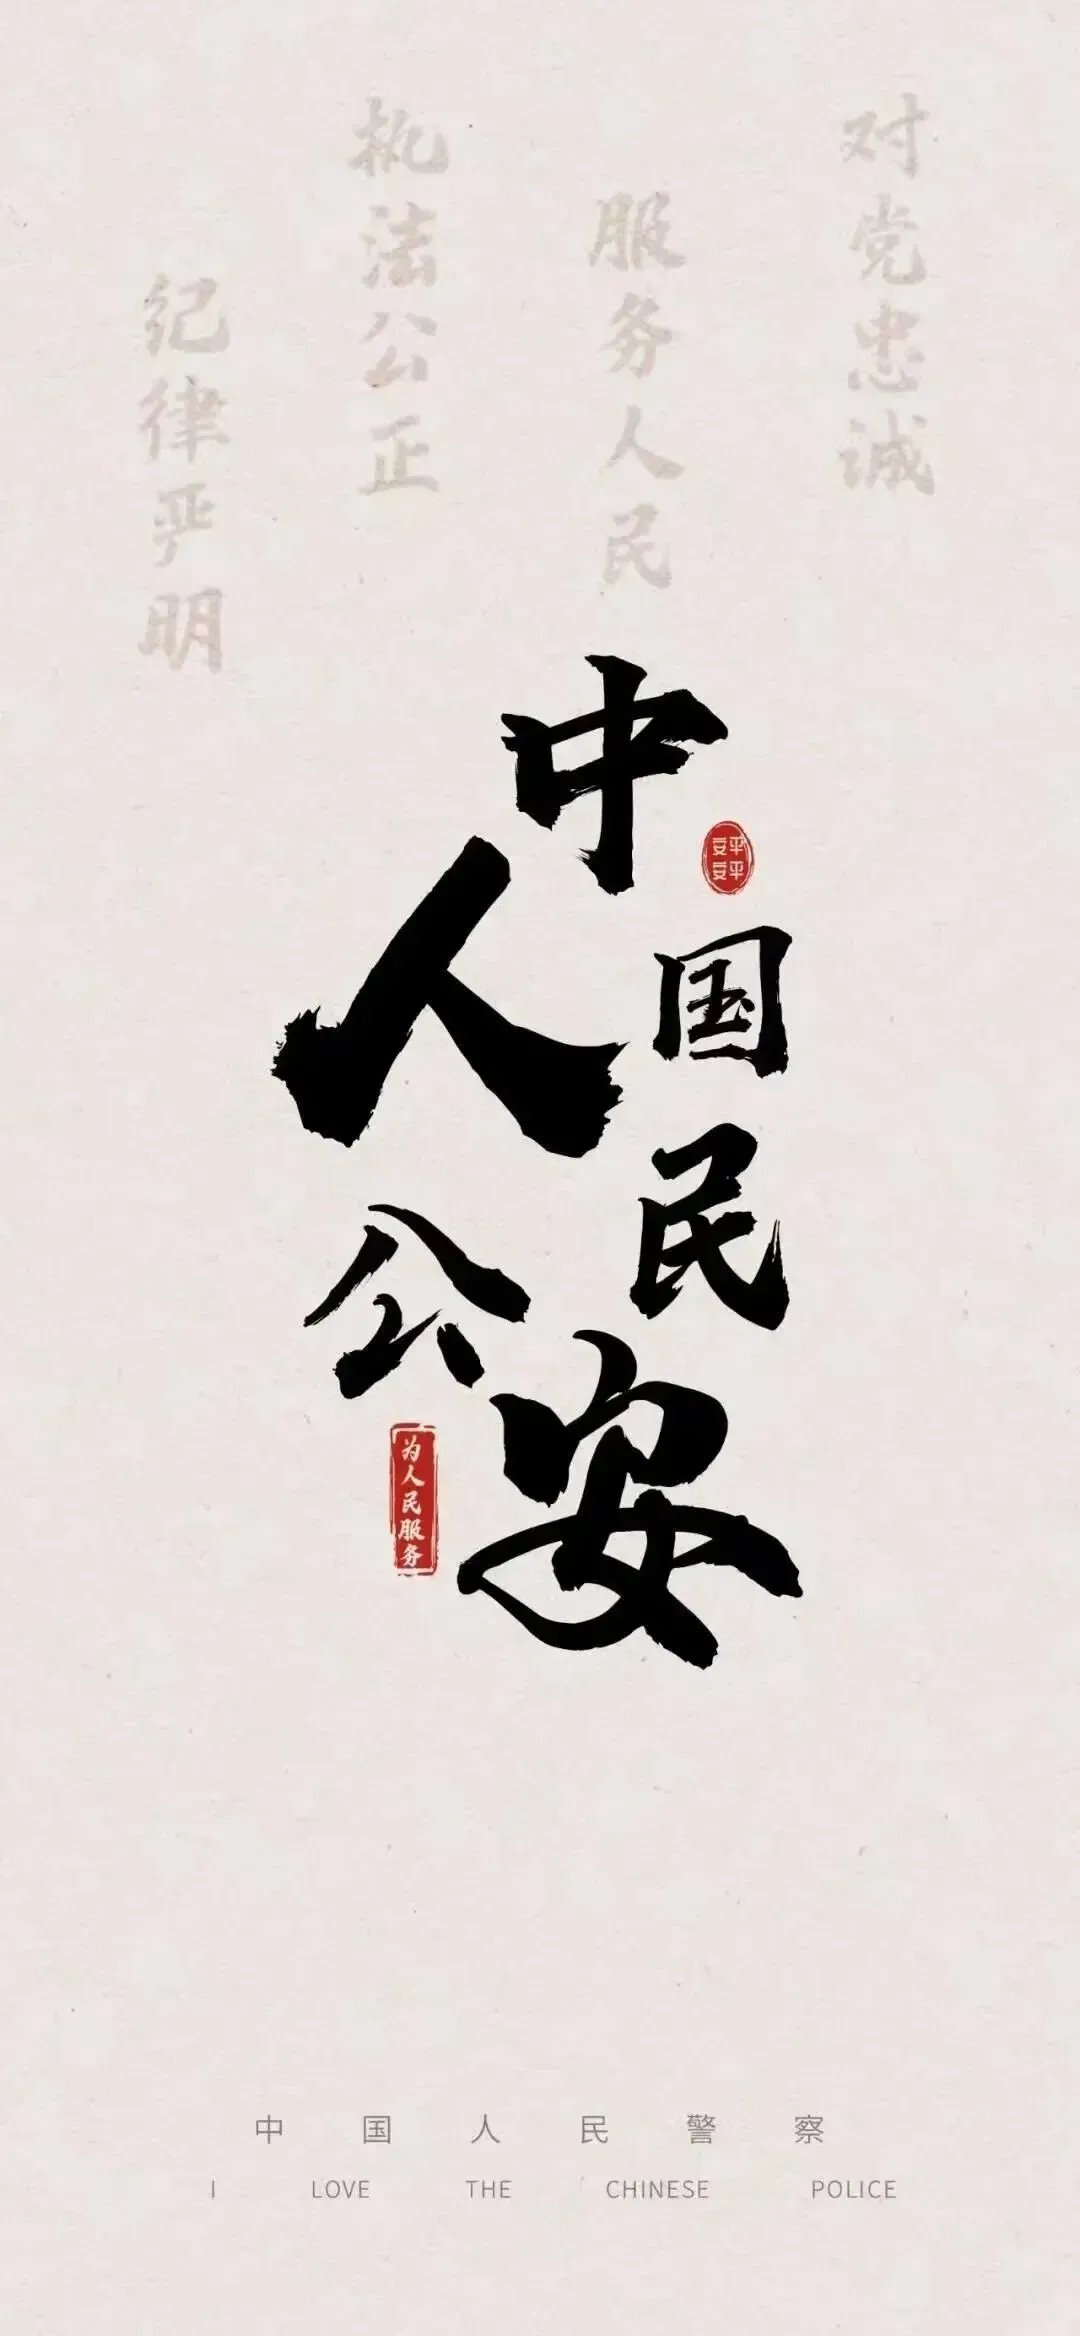 对党忠诚
服务人民
执法公正
纪律严明
中国人民公安
平平安安
为人民服务
中国人民警察
I LOVE THE CHINESE POLICE